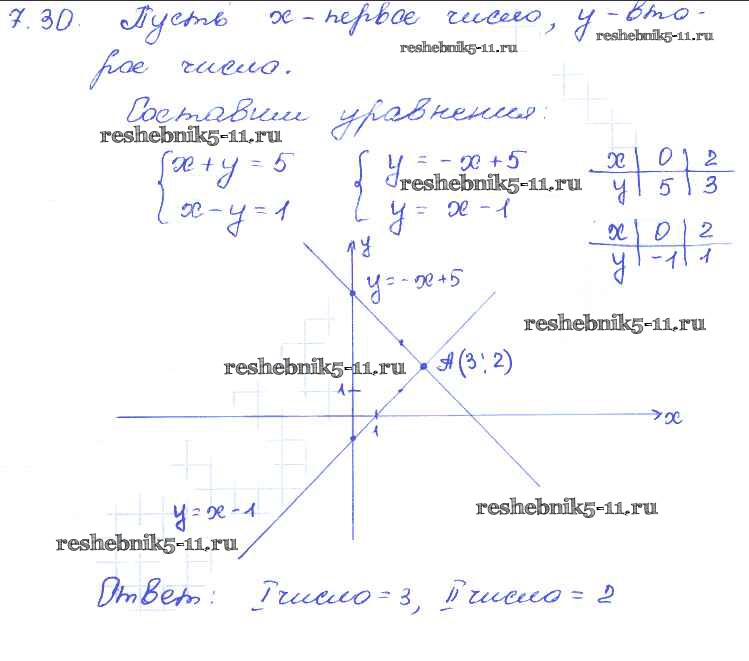 7.30. Пусть x - первое число, y - вто-
reshebnik5-11.ru
reshebnik5-11.ru
рое число.
Составим уравнения:
reshebnik5-11.ru
{ x + y = 5
x - y = 1
{ y = - x + 5
reshebnik5-11.ru
y = x - 1
x | 0 | 2
y | 5 | 3
x | 0 | 2
y | -1 | 1
y
y = - x + 5
reshebnik5-11.ru
A (3; 2)
reshebnik5-11.ru
1
x
1
y = x - 1
reshebnik5-11.ru
reshebnik5-11.ru
Ответ: I число = 3, II число = 2